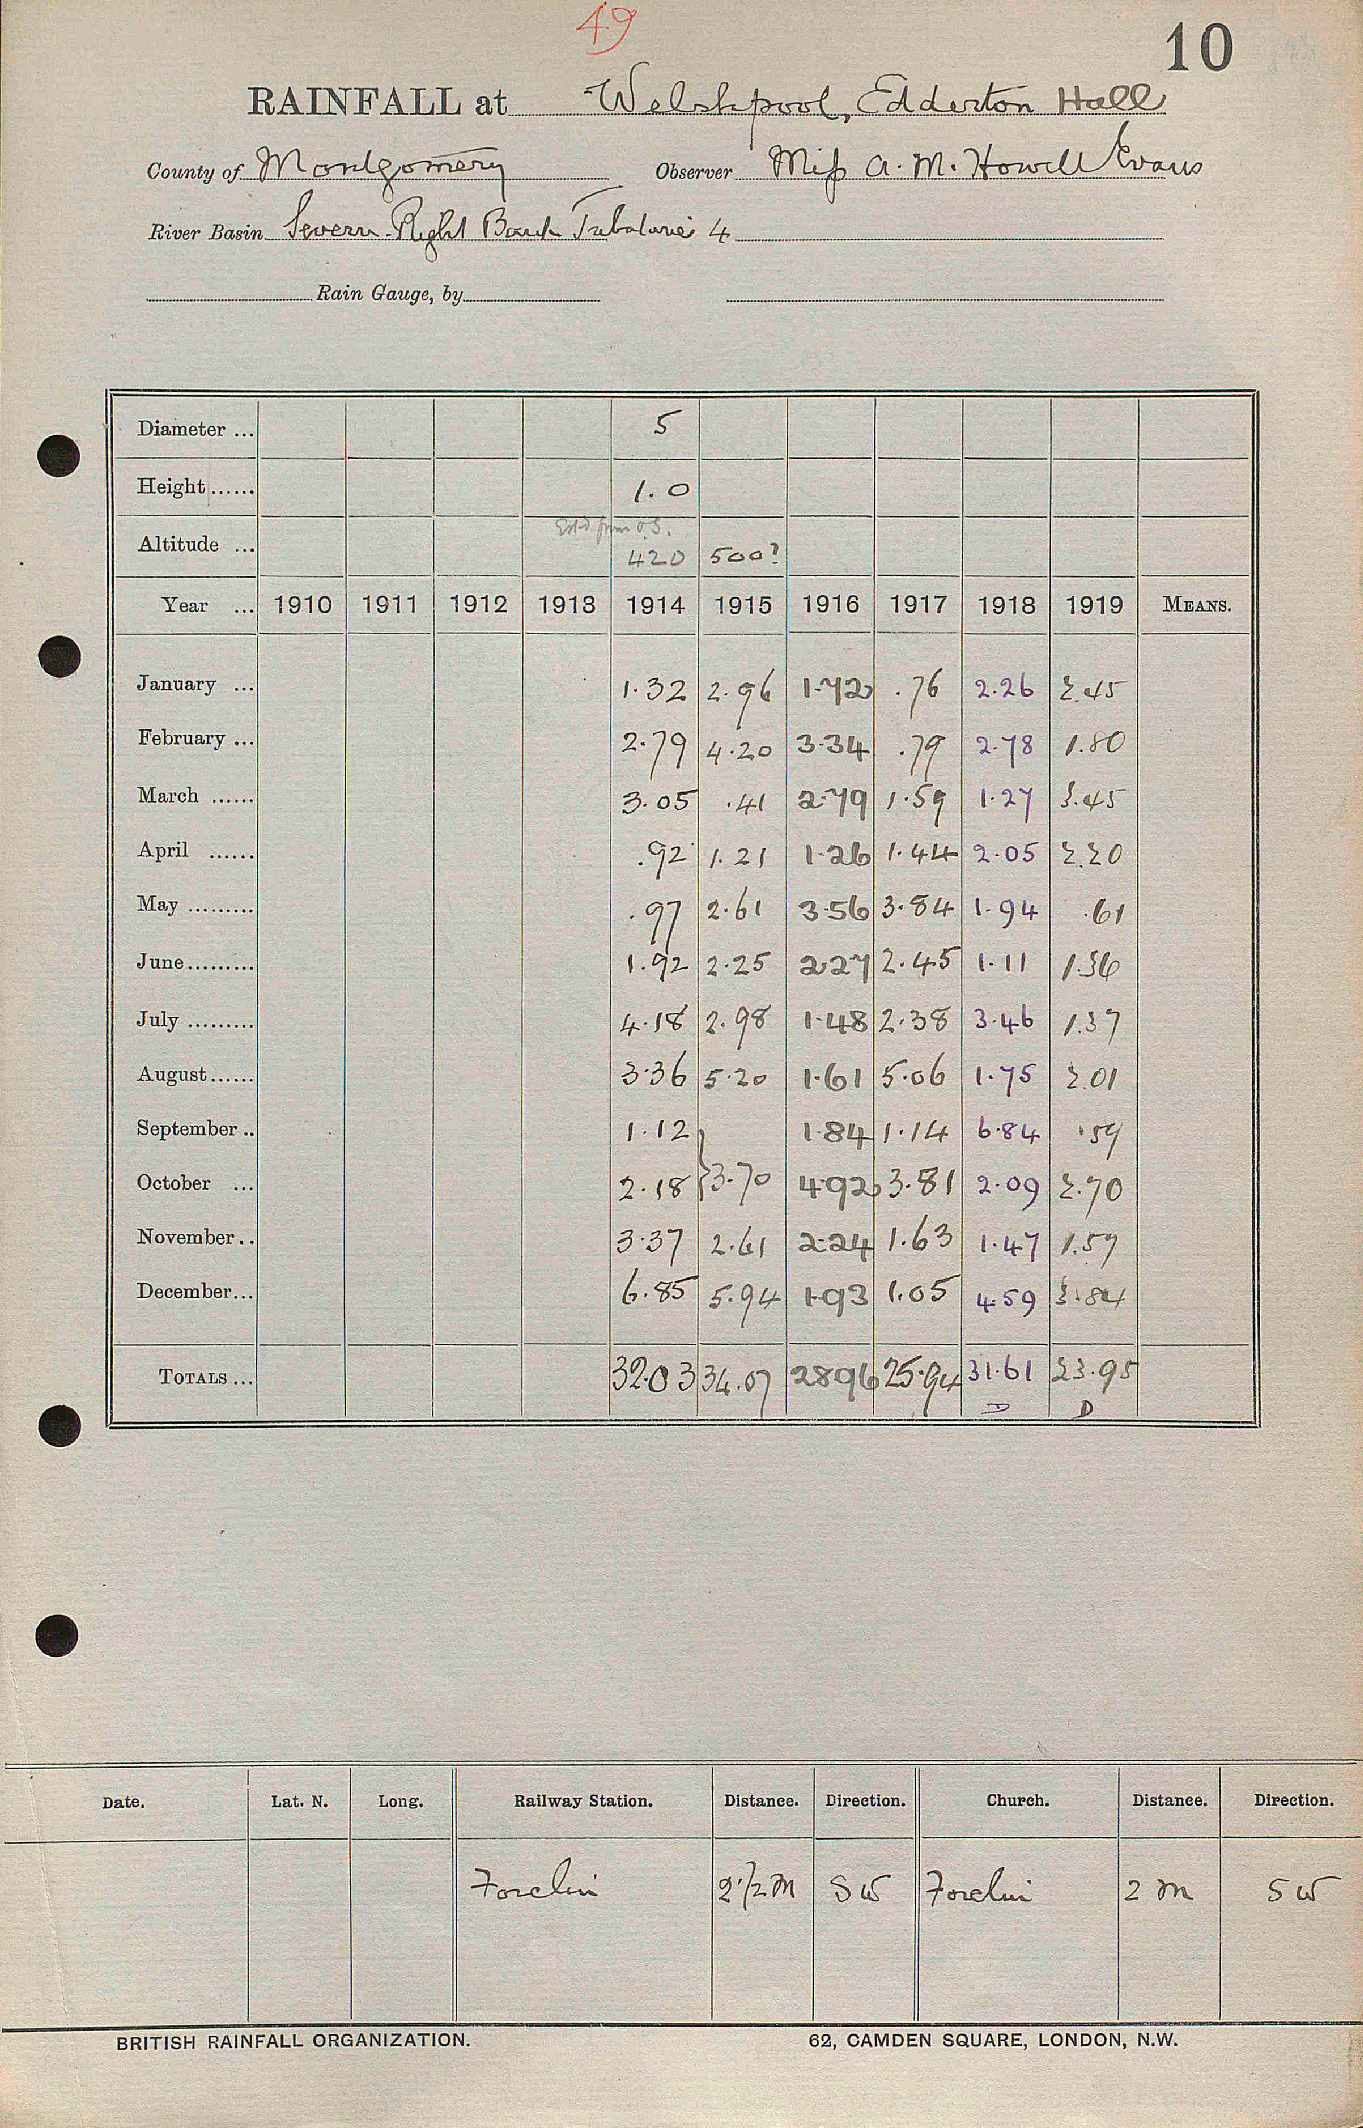 49
10
RAINFALL at Welshpool, Edderton Hall
County of Montgomery Observer Miss A. M. Howell Evans
River Basin Severn - Right Bank Tributaries 4
Rain Gauge, by
Diameter ... 5
Height...... 1.0
Est'd from O.S.
Altitude ... 420 500?
Year ... 1910 1911 1912 1913 1914 1915 1916 1917 1918 1919 MEANS.
January ... 1.32 2.96 1.72 .76 2.26 2.45
February ... 2.79 4.20 3.34 .79 2.78 1.80
March ...... 3.05 .41 2.79 1.59 1.27 3.45
April ...... .92 1.21 1.26 1.44 2.05 2.20
May ......... .97 2.61 3.56 3.84 1.94 .61
June......... 1.92 2.25 2.27 2.45 1.11 1.36
July ......... 4.18 2.98 1.48 2.38 3.46 1.37
August...... 3.36 5.20 1.61 5.06 1.75 2.01
September .. 1.12 1.84 1.14 6.84 .59
October ... 2.18 } 3.70 4.92 3.81 2.09 2.70
November.. 3.37 2.61 2.24 1.63 1.47 1.57
December... 6.85 5.94 1.93 1.05 4.59 3.84
TOTALS ... 32.03 34.07 28.96 25.94 31.61 23.95
D D
Date. Lat. N. Long. Railway Station. Distance. Direction. Church. Distance. Direction.
Forden 2½ M SW Forden 2 M SW
BRITISH RAINFALL ORGANIZATION. 62, CAMDEN SQUARE, LONDON, N.W.